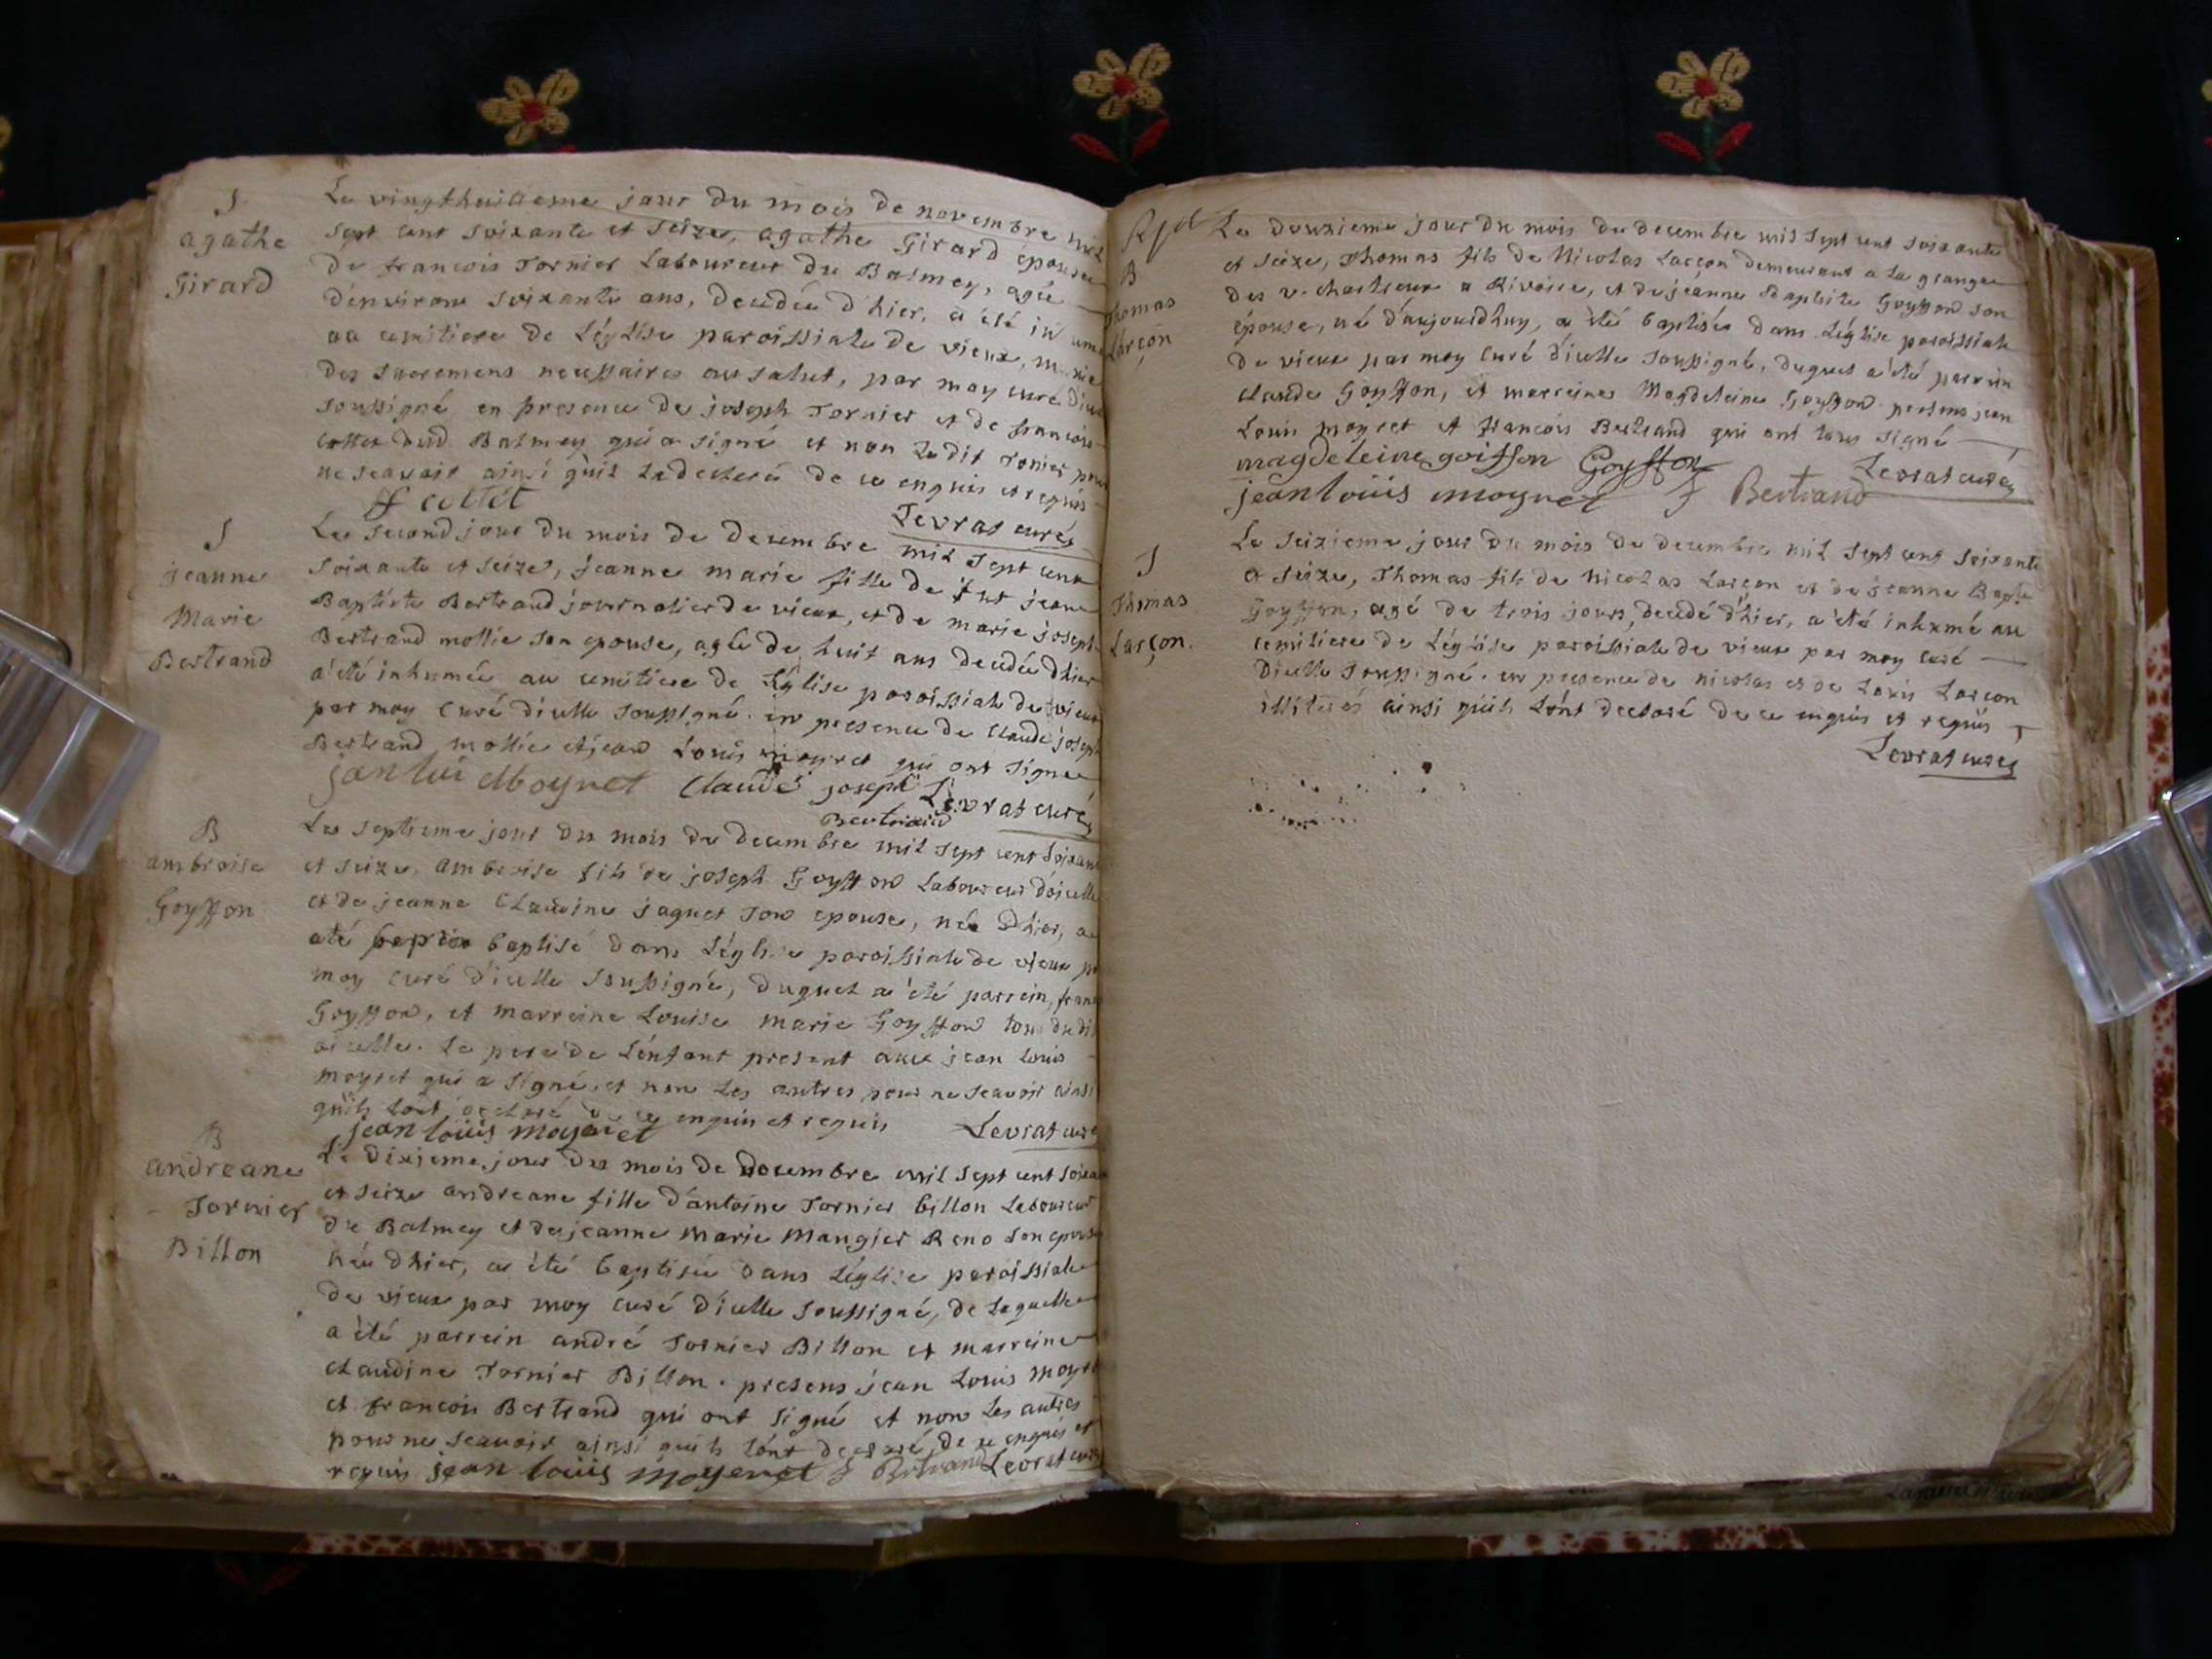 S
agathe
Girard
Le vingthuitieme jour du mois de novembre mil
sept cent soixante et seize, agathe Girard epouse
de francois Tornier Laboureur du Balmey, agée
d'environ soixante ans, decedée d'hier, a été inhumée
au cemitiere de Léglise paroissiale de vieux, munie
des sacremens necessaires au salut, par moy curé d'icelle
soussigné en presence de joseph Tornier et de francois
Cottet dud. Balmey qui a signé et non Ledit Tornier pour
ne scavoir ainsi quil La declaré de ce enquis et requis
ff cottet
Levrat curé
S
jeanne
Marie
Bertrand
Le second jour du mois de decembre mil sept cent
soixante et seize, jeanne marie fille de fut jean
Baptiste Bertrand journalier de vieux, et de marie joseph
Bertrand mollie son epouse, agée de huit ans decedée d'hier
a été inhumée au cemitiere de Léglise paroissiale de vieux
par moy Curé d'icelle soussigné. en presence de claude joseph
Bertrand mollie et jean Louis moyret qui ont signé
jan lui Moyret Claude joseph Levrat curé
Bertrand
B
ambroise
Goyffon
Le septieme jour du mois de decembre mil sept cent soixante
et seize, ambroise fils de joseph Goyffon Laboureur d'oicelle
et de jeanne Claudine jaquet son epouse, né d'hier, a
été baptisé dans Léglise paroissiale de vieux par
moy curé d'icelle soussigné, duquel a été parrein, fran
Goyffon, et marreine Louise marie Goyffon tous dudit
oicelle. Le pere de Lénfant present avec jean Louis
moyret qui a signé, et non Les autres pour ne scavoir ainsi
quils Lónt declaré de ce enquis et requis Levrat curé
jean loüis moyret
B
andreane
Tornier
Billon
Le dixieme jour du mois de decembre mil sept cent soixante
et seize andreane fille d'antoine Tornier billon Laboureur
du Balmey et de jeanne marie Mangier Reno son epouse
née d'hier, a été baptisée dans Léglise paroissiale
de vieux par moy curé d'icelle soussigné, de Laquelle
a été parrein andré Tornier Billon et marreine
claudine Tornier Billon. presens jean Louis moyret
et francois Bertrand qui ont signé et non Les autres
pour ne scavoir ainsi quils Lónt declaré de ce enquis et
requis jean loüis moyeret f Bertrand Levrat curé
B
Thomas
Larçon
Le douzieme jour du mois de decembre mil sept cent soixante
et seize, Thomas fils de Nicolas Larçon demeurant a La grange
des v. chartreux a Rivoire, et de jeanne Baptiste Goyffon son
épouse, né d'aujourdhuy, a été baptisé dans Léglise paroissiale
de vieux par moy Curé d'icelle soussigné, duquel a été parrein
claude Goyffon, et marreine Magdeleine Goyffon presens jean
Louis moyret et francois Bertrand qui ont tous signé
magdeleine goiffon Goyffon Levrat curé
jean loüis moyret f Bertrand
S
Thomas
Larçon.
Le seizieme jour du mois de decembre mil sept cent soixante
et seize, Thomas fils de Nicolas Larçon et de jeanne Bapte
Goyffon, agé de trois jours, decedé d'hier, a été inhumé au
cemitiere de Léglise paroissiale de vieux par moy curé
d'icelle soussigné. en presence de nicolas et de Louis Larçon
illiterés ainsi quils Lónt declaré de ce enquis et requis
Levrat curé